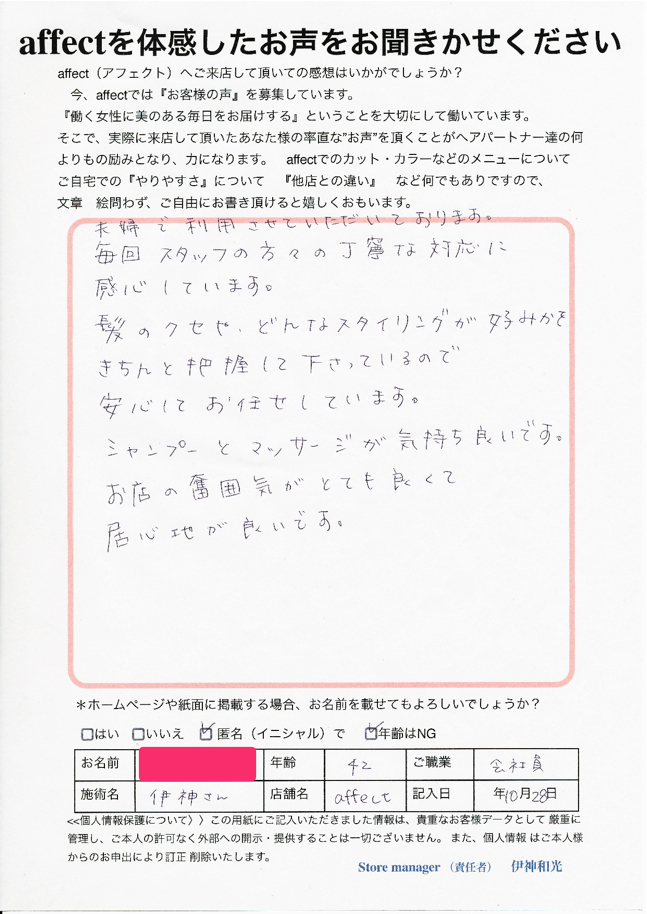 affectを体感したお声をお聞きかせください
affect（アフェクト）へご来店して頂いての感想はいかがでしょうか？
今、affectでは『お客様の声』を募集しています。
『働く女性に美のある毎日をお届けする』ということを大切にして働いています。
そこで、実際に来店して頂いたあなた様の率直な”お声”を頂くことがヘアパートナー達の何
よりもの励みとなり、力になります。 affectでのカット・カラーなどのメニューについて
ご自宅での『やりやすさ』について 『他店との違い』 など何でもありですので、
文章 絵問わず、ご自由にお書き頂けると嬉しくおもいます。
夫婦で利用させていただいております。
毎回スタッフの方々の丁寧な対応に
感心しています。
髪のクセや、どんなスタイリングが好みかを
きちんと把握して下さっているので
安心してお任せしています。
シャンプーとマッサージが気持ち良いです。
お店の雰囲気がとても良くて
居心地が良いです。
＊ホームページや紙面に掲載する場合、お名前を載せてもよろしいでしょうか？
□はい □いいえ ☑匿名（イニシャル）で ☑年齢はNG
お名前 年齢 42 ご職業 会社員
施術名 伊神さん 店舗名 affect 記入日 年10月28日
<<個人情報保護について〉〉この用紙にご記入いただきました情報は、貴重なお客様データとして 厳重に
管理し、ご本人の許可なく外部への開示・提供することは一切ございません。また、個人情報 はご本人様
からのお申出により訂正 削除いたします。
Store manager （責任者） 伊神和光